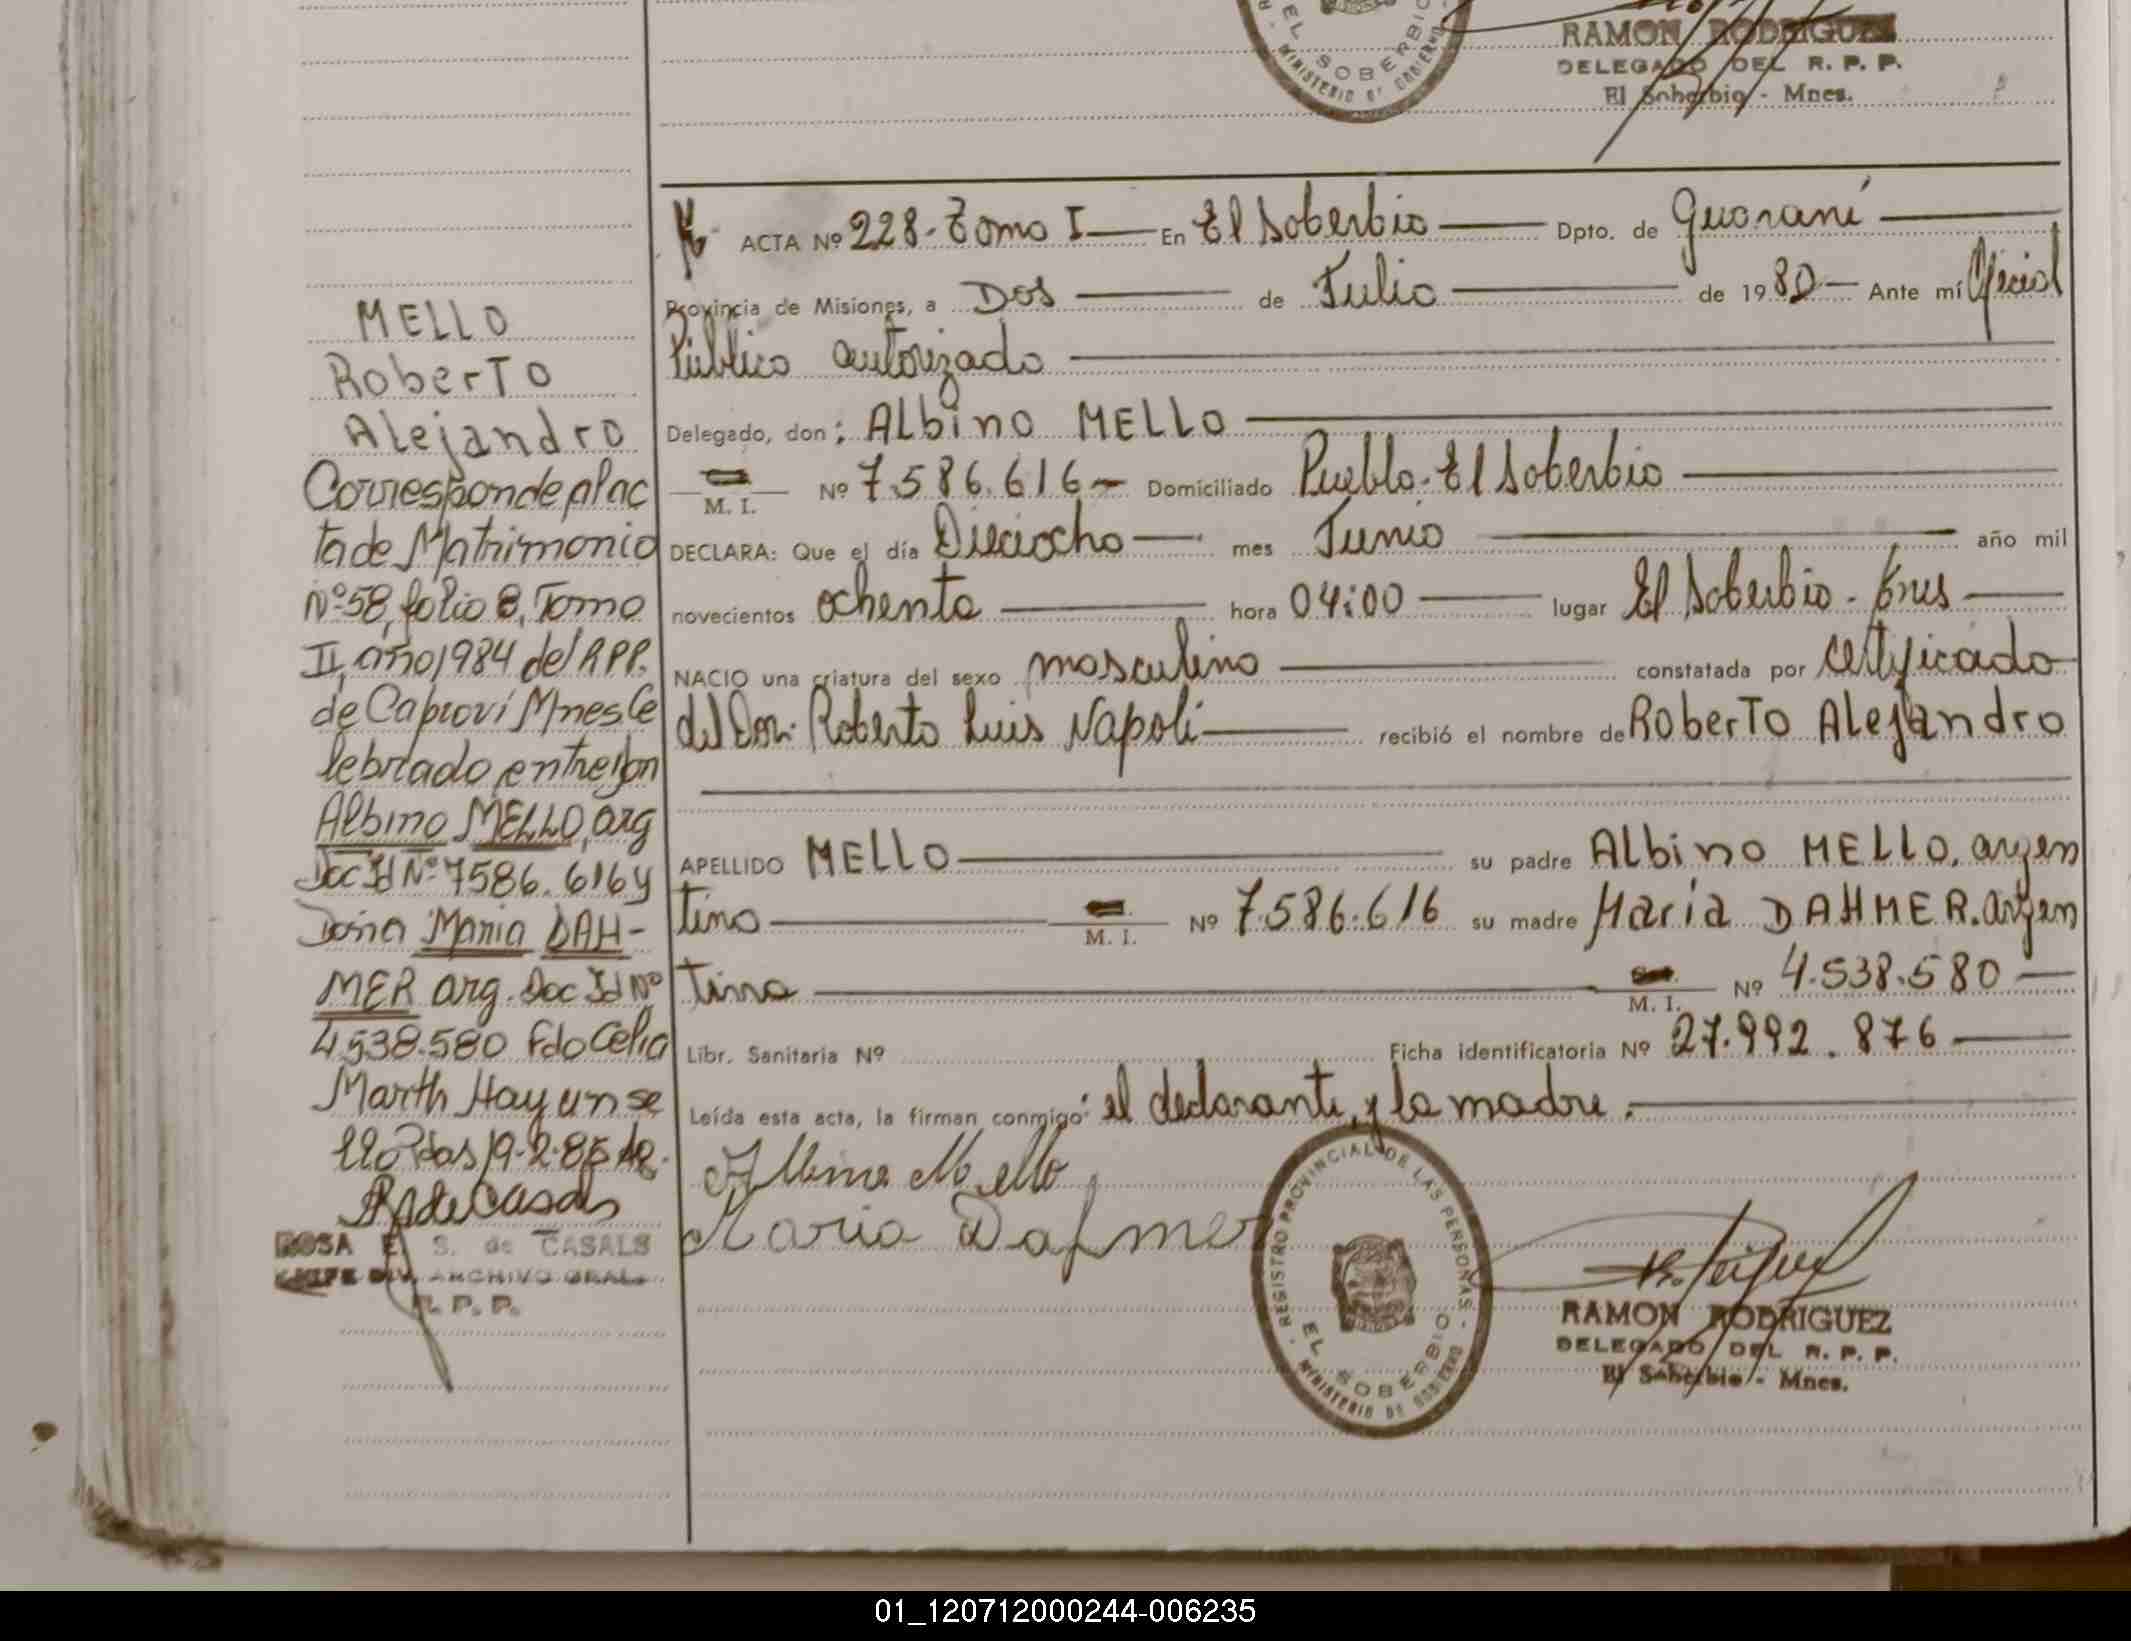 EL SOBERBIO
MINISTERIO DE GOBIERNO
RAMON RODRIGUEZ
DELEGADO DEL R. P. P.
El Soberbio - Mnes.
MELLO
Roberto
Alejandro
Corresponde al ac
ta de Matrimonio
Nº 58, folio 8, Tomo
II, año 1984 del R.P.P.
de Capiovi Mnes Ce
lebrado entre Don
Albino MELLO, arg
Doc Id Nº 7586.616 y
Doña Maria DAH-
MER arg. Doc Id Nº
4538.580 fdo Celia
Marth Hayun se
llo Pdas 19-2-85
ROSA E. S. de CASALS
JEFE DIV. ARCHIVO GRAL.
R. P. P.
ACTA Nº 228. Tomo I En El Soberbio Dpto. de Guaraní
Provincia de Misiones, a Dos de Julio de 1980 Ante mí Oficial
Público autorizado
Delegado, don: Albino MELLO
M. I. Nº 7.586.616 Domiciliado Pueblo. El Soberbio
DECLARA: Que el día Dieciocho mes Junio año mil
novecientos ochenta hora 04:00 lugar El Soberbio - Mnes
NACIO una criatura del sexo masculino constatada por certificado
del Don. Roberto Luis Napoli recibió el nombre de Roberto Alejandro
APELLIDO MELLO su padre Albino MELLO. argen
tino M. I. Nº 7.586.616 su madre Maria DAHMER. argen
tina M. I. Nº 4.538.580
Libr. Sanitaria Nº Ficha identificatoria Nº 27.992.876
Leída esta acta, la firman conmigo: el declarante, y la madre.
Albino Mello
Maria Dahmer
REGISTRO PROVINCIAL DE LAS PERSONAS
EL SOBERBIO
MINISTERIO DE GOBIERNO
RAMON RODRIGUEZ
DELEGADO DEL R. P. P.
El Soberbio - Mnes.
01_120712000244-006235